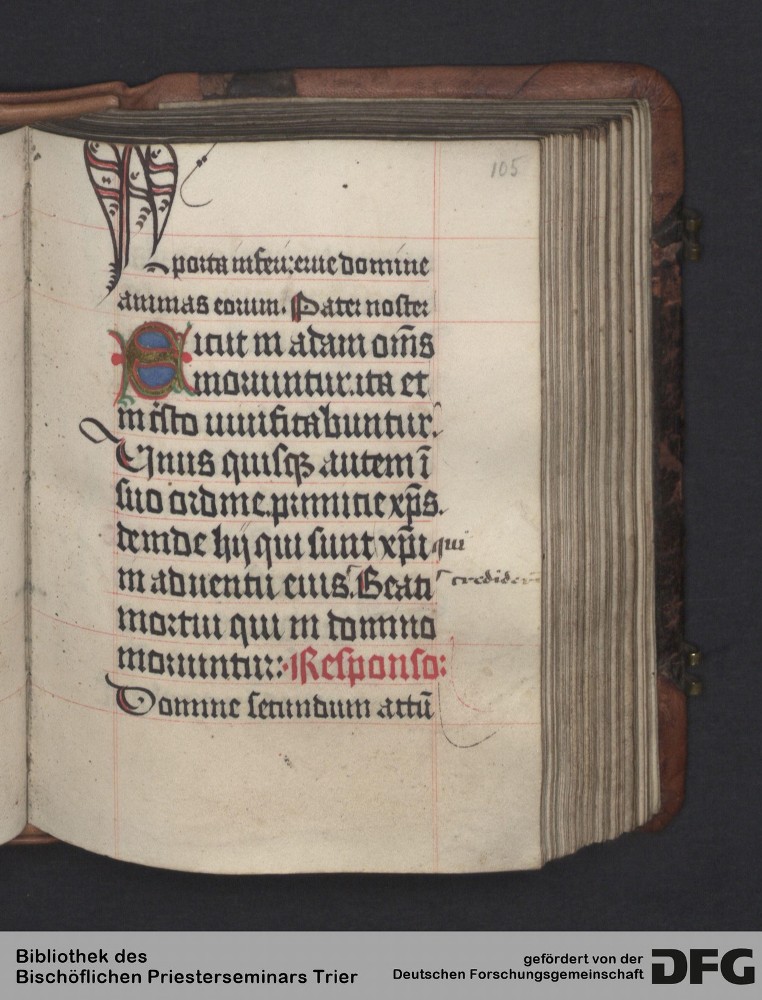 105
A porta inferi: erue domine
animas eorum. Pater noster
Sicut in adam om̄s
moriuntur. ita et
in xр̄isto uiuificabuntur.
Unus quisqꝫ autem ī
suo ordine. primicie xp̄s.
deinde hij qui sunt xp̄i qui
in aduentu eius. Beati credider
mortui qui in domino
moriuntur: Responso:
Domine secundum actū
Bibliothek des
Bischöflichen Priesterseminars Trier
gefördert von der
Deutschen Forschungsgemeinschaft
DFG